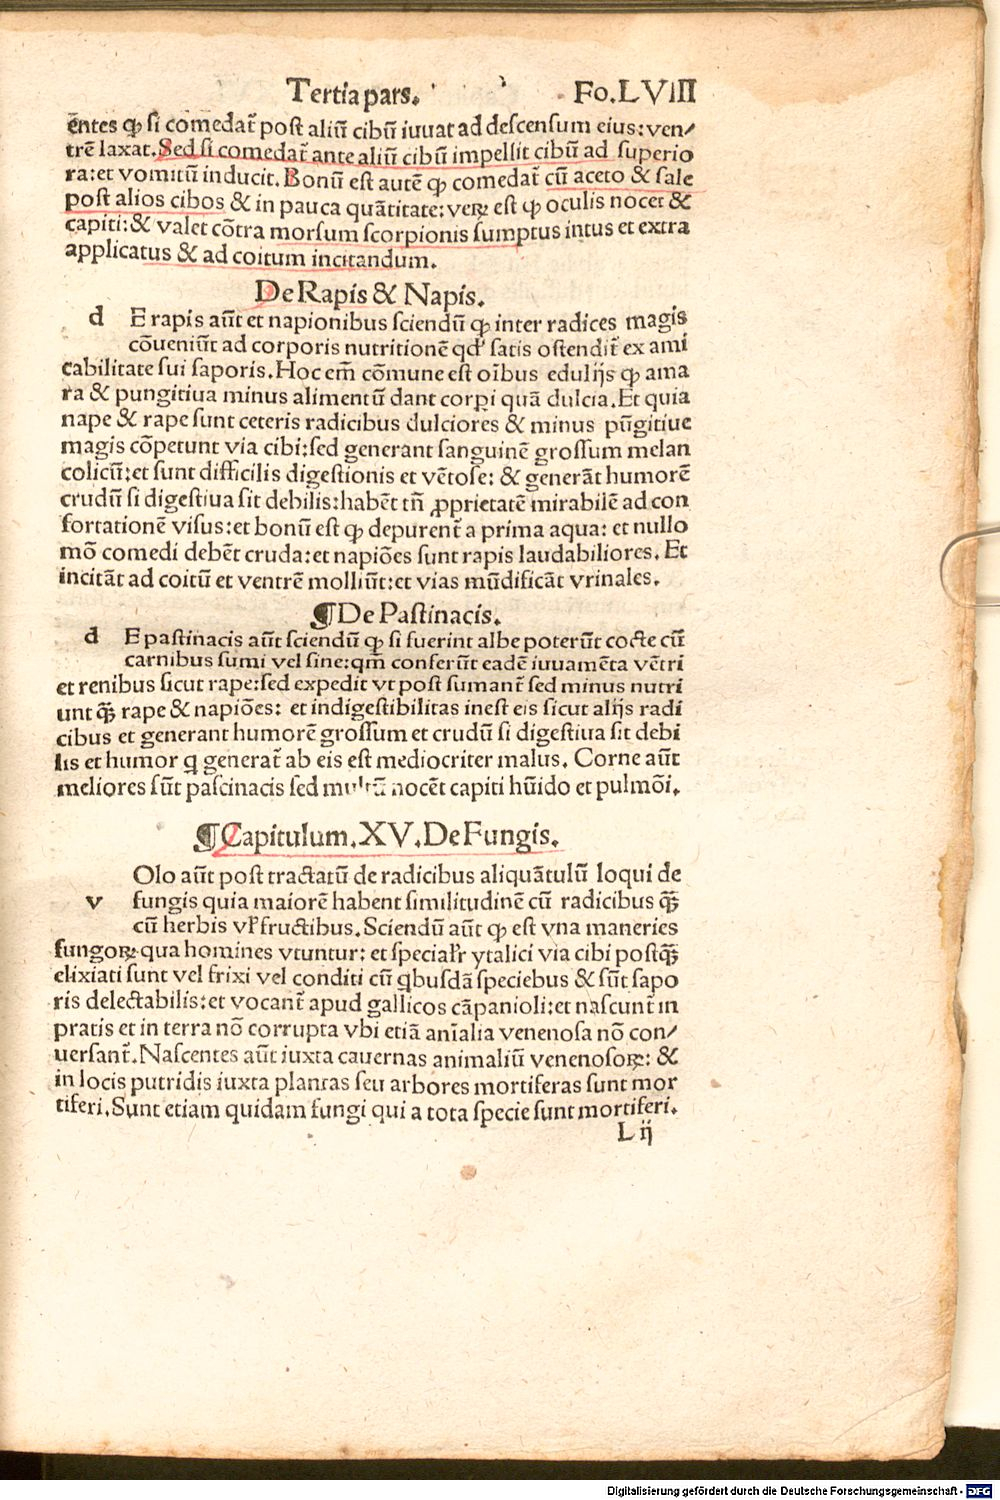 Tertia pars. Fo. LVIII
ētes ꝙ si comedat̄ post aliū cibū iuuat ad descensum eius: ven⸗
trē laxat. Sed si comedat̄ ante aliū cibū impellit cibū ad superio
ra: et vomitū inducit. Bonū est autē ꝙ comedat̄ cū aceto & sale
post alios cibos & in pauca quātitate: veꝝ est ꝙ oculis nocet &
capiti: & valet cōtra morsum scorpionis sumptus intus et extra
applicatus & ad coitum incitandum.
De Rapis & Napis.
d E rapis aūt et napionibus sciendū ꝙ inter radices magis
cōueniūt ad corporis nutritionē qd' satis ostendit̄ ex ami
cabilitate sui saporis. Hoc em̄ cōmune est oībus edulijs ꝙ ama
ra & pungitiua minus alimentū dant corꝑi quā dulcia. Et quia
nape & rape sunt ceteris radicibus dulciores & minus pūgitiue
magis cōpetunt via cibi: sed generant sanguinē grossum melan
colicū: et sunt difficilis digestionis et vētose: & generāt humorē
crudū si digestiua sit debilis: habēt tn̄ ꝓprietatē mirabilē ad con
fortationē visus: et bonū est ꝙ depurent̄ a prima aqua: et nullo
mō comedi debēt cruda: et napiōes sunt rapis laudabiliores. Et
incitāt ad coitū et ventrē molliūt: et vias mūdificāt vrinales.
¶ De Pastinacis.
d E pastinacis aūt sciendū ꝙ si fuerint albe poterūt cocte cū
carnibus sumi vel sine: qm̄ conferūt eadē iuuamēta vētri
et renibus sicut rape: sed expedit vt post sumant̄ sed minus nutri
unt q̄ȝ rape & napiōes: et indigestibilitas inest eis sicut alijs radi
cibus et generant humorē grossum et crudū si digestiua sit debi
lis et humor q̇ generat̄ ab eis est mediocriter malus. Corne aūt
meliores sūt pascinacis sed multū nocēt capiti hūido et pulmōi.
¶ Capitulum. XV. De Fungis.
Olo aūt post tractatū de radicibus aliquātulū loqui de
v fungis quia maiorē habent similitudinē cū radicibus q̄ȝ
cū herbis vl' fructibus. Sciendū aūt ꝙ est vna maneries
fungoꝝ qua homines vtuntur: et specialr̄ ytalici via cibi postq̄ȝ
elixiati sunt vel frixi vel conditi cū q̇busdā speciebus & sūt sapo
ris delectabilis: et vocant̄ apud gallicos cāpanioli: et nascunt̄ in
pratis et in terra nō corrupta vbi etiā aīalia venenosa nō con⸗
uersant̄. Nascentes aūt iuxta cauernas animaliū venenosoꝝ: &
in locis putridis iuxta plantas seu arbores mortiferas sunt mor
tiferi. Sunt etiam quidam fungi qui a tota specie sunt mortiferi.
L ij
Digitalisierung gefördert durch die Deutsche Forschungsgemeinschaft - DFG